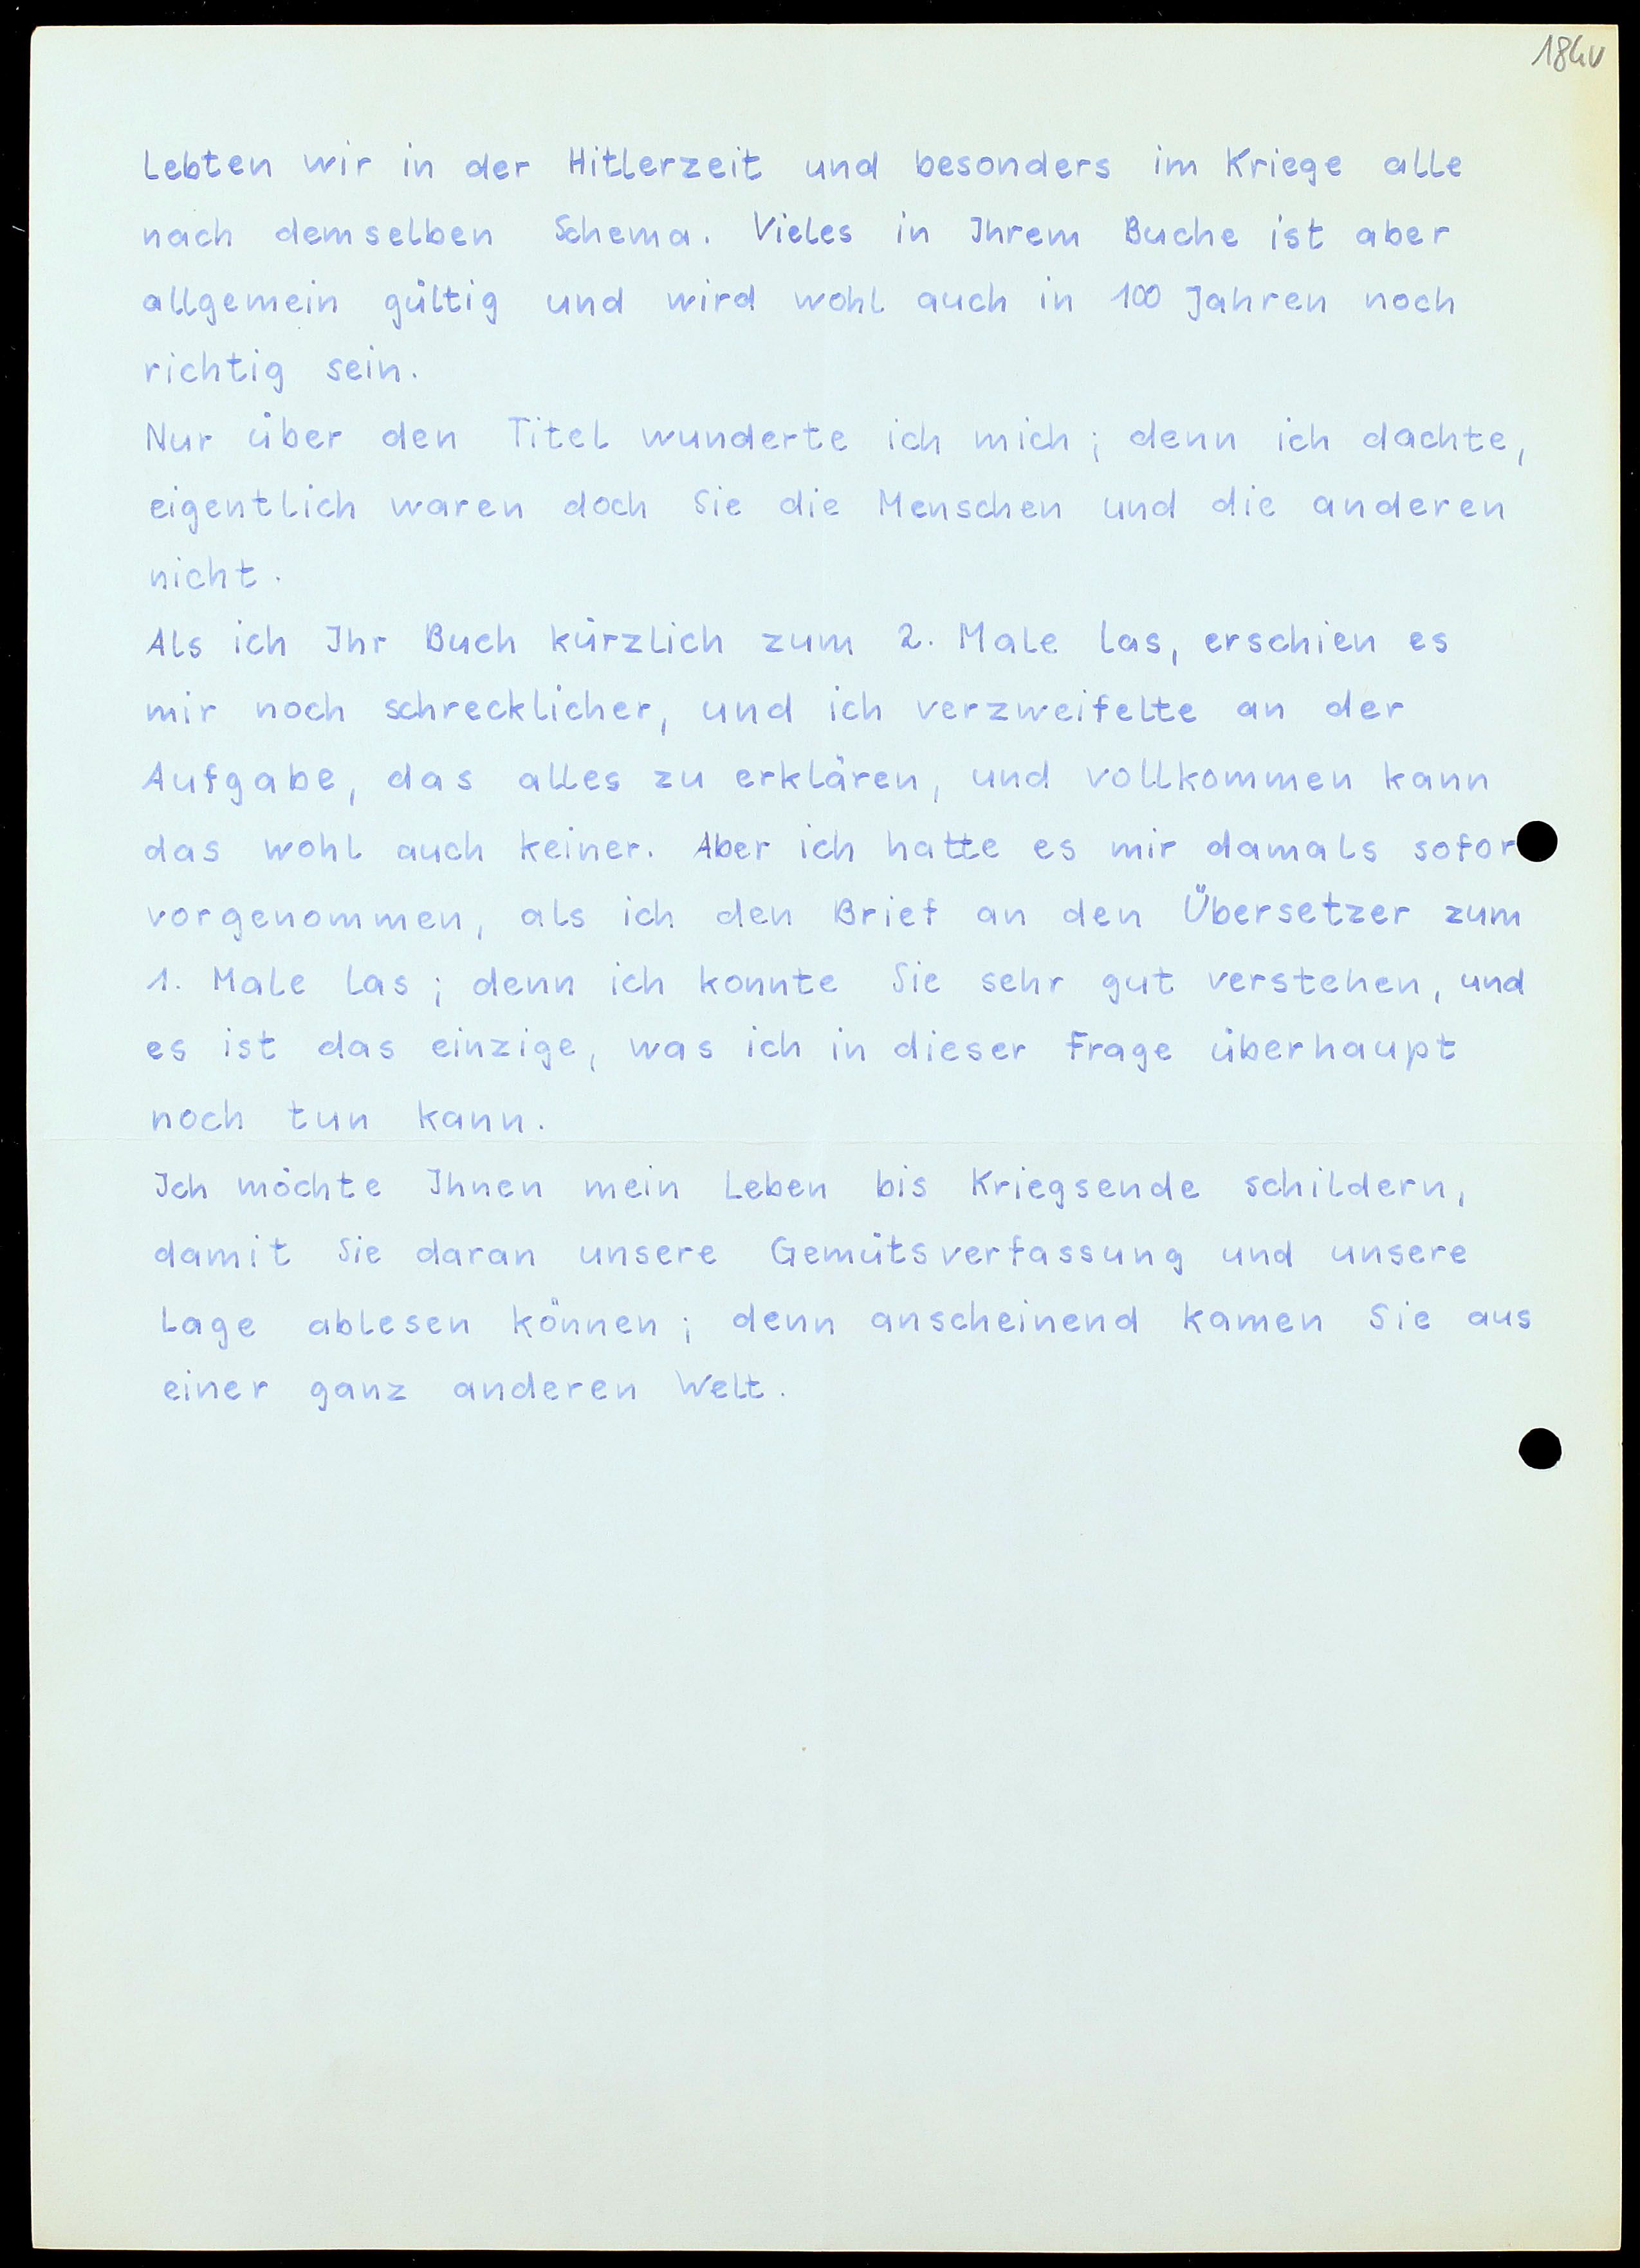 184v
Lebten wir in der Hitlerzeit und besonders im Kriege alle
nach demselben Schema. Vieles in Ihrem Buche ist aber
allgemein gültig und wird wohl auch in 100 Jahren noch
richtig sein.
Nur über den Titel wunderte ich mich; denn ich dachte,
eigentlich waren doch Sie die Menschen und die anderen
nicht.
Als ich Ihr Buch kürzlich zum 2. Male las, erschien es
mir noch schrecklicher, und ich verzweifelte an der
Aufgabe, das alles zu erklären, und vollkommen kann
das wohl auch keiner. Aber ich hatte es mir damals sofor
vorgenommen, als ich den Brief an den Übersetzer zum
1. Male las; denn ich konnte Sie sehr gut verstehen, und
es ist das einzige, was ich in dieser Frage überhaupt
noch tun kann.
Ich möchte Ihnen mein Leben bis Kriegsende schildern,
damit Sie daran unsere Gemütsverfassung und unsere
Lage ablesen können; denn anscheinend kamen Sie aus
einer ganz anderen Welt.